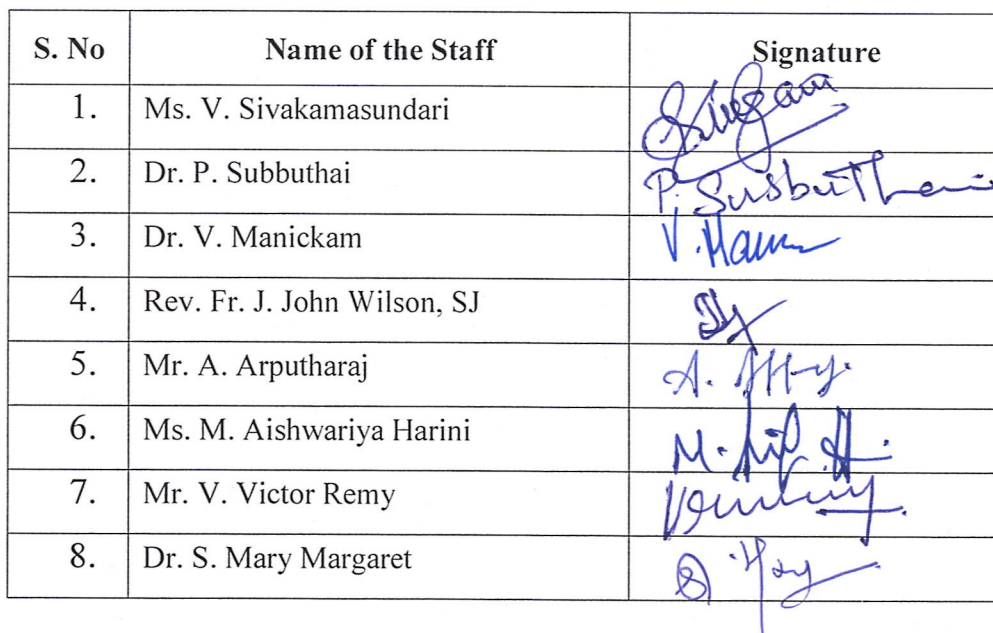 S. No Name of the Staff Signature
1. Ms. V. Sivakamasundari
2. Dr. P. Subbuthai P. Subbuthai
3. Dr. V. Manickam V.
4. Rev. Fr. J. John Wilson, SJ
5. Mr. A. Arputharaj A.
6. Ms. M. Aishwariya Harini M.
7. Mr. V. Victor Remy
8. Dr. S. Mary Margaret